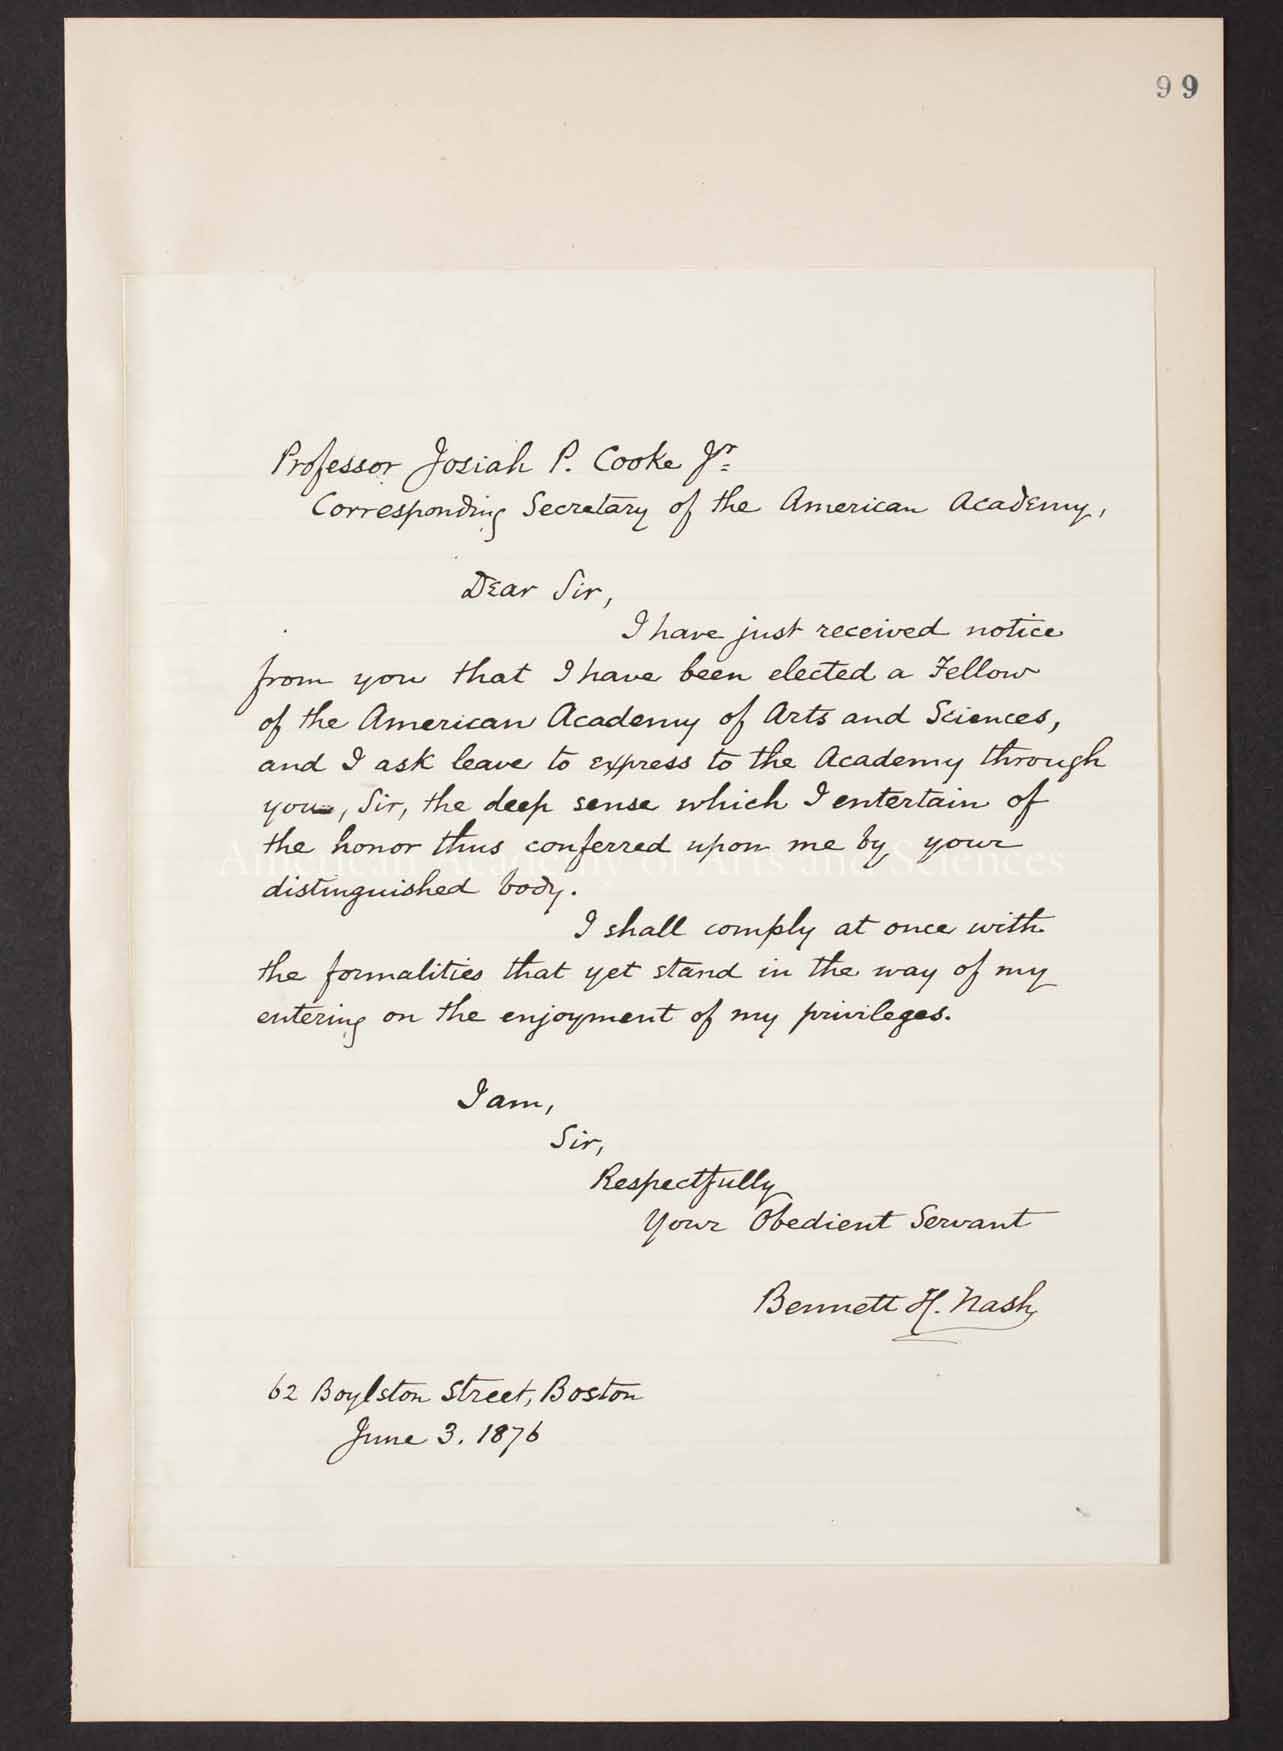 99
Professor Josiah P. Cooke Jr.
Corresponding Secretary of the American Academy,
Dear Sir,
I have just received notice
from you that I have been elected a Fellow
of the American Academy of Arts and Sciences,
and I ask leave to express to the Academy through
you, Sir, the deep sense which I entertain of
the honor thus conferred upon me by your
American Academy of Arts and Sciences
distinguished body.
I shall comply at once with
the formalities that yet stand in the way of my
entering on the enjoyment of my privileges.
I am,
Sir,
Respectfully
Your Obedient Servant
Bennett H. Nash
62 Boylston Street, Boston
June 3. 1876